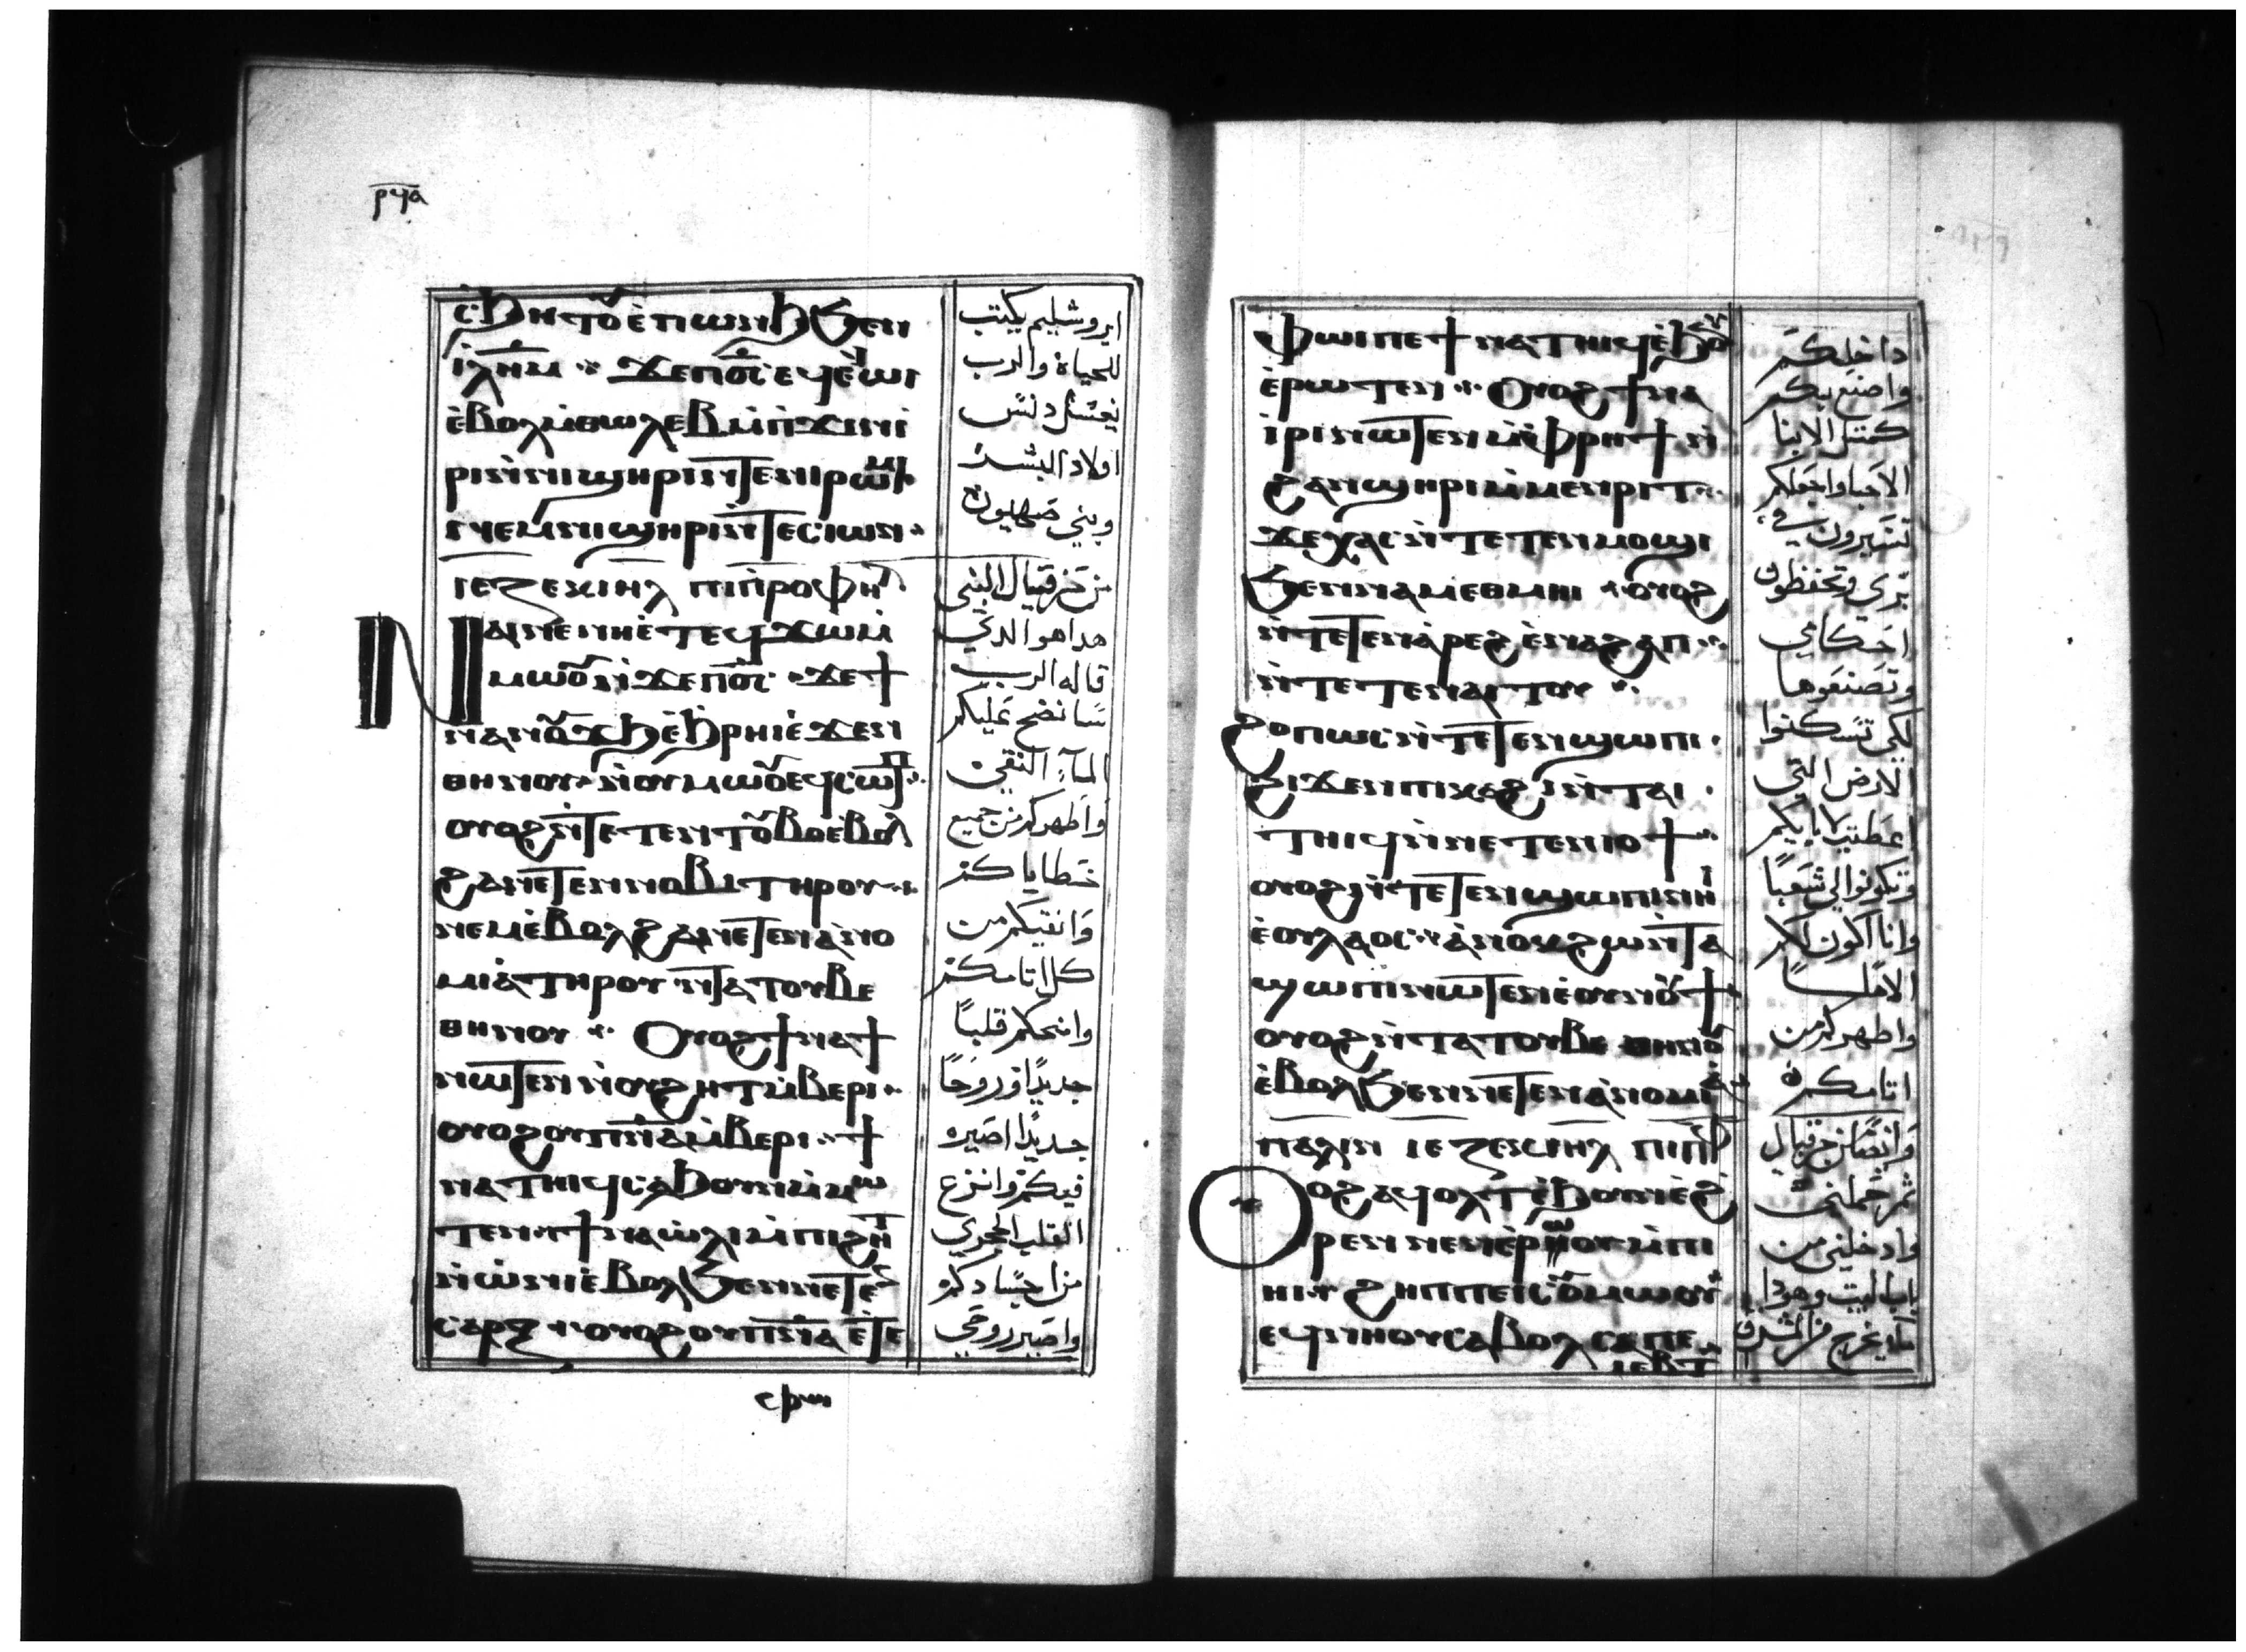 ⲣϥⲁ
ⲥϧⲏⲧⲟⲩ ⲉ̀ⲡⲱⲛϧ ϧⲉⲛ
ⲓ̀ⲗ̅ⲏ̅ⲙ ϫⲉ ⲡⲟ̅ⲥ̅ ⲉϥⲉ̀ⲱⲓ
ⲉ̀ⲃⲟⲗ ⲙ̀ⲑⲱⲗⲉⲃ ⲙ̀ⲡ̀ϫⲓⲛⲓ̀
ⲣⲓ ⲛ̀ⲛⲓϣⲏⲣⲓ ⲛ̀ⲧⲉ ⲛⲓⲣⲱⲙⲓ
ⲛⲉⲙ ⲛⲓϣⲏⲣⲓ ⲛ̀ⲧⲉ ⲥⲓⲱⲛ
ⲓⲉⲍⲉⲕⲓⲏⲗ ⲡⲓⲡ̀ⲣⲟⲫⲏⲧ
ⲛⲁⲓ ⲛⲉ ⲛⲏ ⲉ̀ⲧⲉϥϫⲱ ⲙ̀
ⲙⲱⲟⲩ ⲛ̀ϫⲉ ⲡⲟ̅ⲥ̅ ϫⲉ ϯ
ⲛⲁⲛⲟⲩϫϧ ⲉ̀ϧⲣⲏⲓ ⲉ̀ϫⲉⲛ
ⲑⲏⲛⲟⲩ ⲛ̀ⲟⲩⲙⲱⲟⲩ ⲉϥⲥⲱⲧⲡ
ⲟⲩⲟϩ ⲛ̀ⲧⲉⲧⲉⲛⲧⲟⲩⲃⲟ ⲉ̀ⲃⲟⲗ
ϩⲁ ⲛⲉⲧⲉⲛⲛⲟⲃⲓ ⲧⲏⲣⲟⲩ
ⲛⲉⲙ ⲉ̀ⲃⲟⲗ ϩⲁ ⲛⲉⲧⲉⲛⲁ̀ⲛⲟ
ⲙⲓⲁ̀ ⲧⲏⲣⲟⲩ ⲛ̀ⲧⲁⲧⲟⲩⲃⲉ
ⲑⲏⲛⲟⲩ ⲟⲩⲟϩ ϯⲛⲁϯ
ⲛⲱⲧⲉⲛ ⲛ̀ⲟⲩϩⲏⲧ ⲙ̀ⲃⲉⲣⲓ
ⲟⲩⲟϩ ⲟⲩⲡ̅ⲛ̅ⲁ̅ ⲙ̀ⲃⲉⲣⲓ ϯ
ⲛⲁⲧⲏⲓϥ ⲥⲁϧⲟⲩⲛ ⲙ̀ⲙⲱ
ⲧⲉⲛ ϯⲛⲁⲱ̀ⲗⲓ ⲙ̀ⲡⲓϩⲏⲧ
ⲛ̀ⲱ̀ⲛⲓ ⲉ̀ⲃⲟⲗ ϧⲉⲛ ⲛⲉⲧⲉⲛ
ⲥⲁⲣⲝ ⲟⲩⲟϩ ⲟⲩⲡ̅ⲛ̅ⲁ̅ ⲉ̀ⲧⲉ
ⲫⲱⲓ
ايروشليم يكتب
للحياة والرب
يغسل دنس
اولاد البشر
وبني صهيون
من حزقيال النبي
هذا هو الذي
قاله الرب
سانضح عليكم
المآء النقي
واطهركم من جميع
خطاياكم
وانقيكم من
كل اثامكم
وامنحكم قلباً
جديدًا وروحًا
جديدًا اصيره
فيكم وانزع
القلب الحجري
من اجسادكم
واصير روحي
ⲫⲱⲓ ⲡⲉ ϯⲛⲁⲧⲏⲓϥ ⲉ̀ϧⲟⲩⲛ
ⲉ̀ⲣⲱⲧⲉⲛ ⲟⲩⲟϩ ϯⲛⲁ
ⲓ̀ⲣⲓ ⲛⲱⲧⲉⲛ ⲙ̀ⲫⲣⲏϯ ⲛ̀
ϩⲁⲛϣⲏⲣⲓ ⲙ̀ⲙⲉⲛⲣⲓⲧ
ϫⲉⲭⲁⲥ ⲛ̀ⲧⲉⲧⲉⲛⲙⲟϣⲓ
ϧⲉⲛ ⲛⲁⲙⲉⲑⲙⲏⲓ ⲟⲩⲟϩ
ⲛ̀ⲧⲉⲧⲉⲛⲁ̀ⲣⲉϩ ⲉ̀ⲛⲁϩⲁⲡ
ⲛ̀ⲧⲉⲧⲉⲛⲁⲓⲧⲟⲩ
ϩⲟⲡⲱⲥ ⲛ̀ⲧⲉⲧⲉⲛϣⲱⲡⲓ
ϩⲓϫⲉⲛ ⲡⲓⲕⲁϩⲓ ⲛ̀ⲧⲁⲓ
ⲧⲏⲓϥ ⲛ̀ⲛⲉⲧⲉⲛⲓⲟϯ
ⲟⲩⲟϩ ⲛ̀ⲧⲉⲧⲉⲛϣⲱⲡⲓ ⲛⲏⲓ
ⲉ̀ⲟⲩⲗⲁⲟⲥ ⲁ̀ⲛⲟⲕ ϩⲱ ⲛ̀ⲧⲁ
ϣⲱⲡⲓ ⲛⲱⲧⲉⲛ ⲉ̀ⲟⲩⲛⲟⲩϯ
ⲟⲩⲟϩ ⲛ̀ⲧⲁⲧⲟⲩⲃⲉ ⲑⲏⲛⲟⲩ
ⲉ̀ⲃⲟⲗ ϧⲉⲛ ⲛⲉⲧⲉⲛⲁ̀ⲛⲟⲙⲓⲁ̀
ⲡⲁⲗⲓⲛ ⲓⲉⲍⲉⲕⲓⲏⲗ ⲡⲓⲡⲣ
ⲟⲩⲟϩ ⲁϥⲟⲗⲧ ⲉ̀ϧⲟⲩⲛ ⲉ̀ϩ
ⲣⲉⲛ ⲛⲉⲛ ⲙ̀ⲡⲓ
ⲏⲓ ϩⲏⲡⲡⲉ ⲓⲥ ⲟⲩⲙⲱⲟⲩ
ⲉϥⲛⲏⲟⲩ ⲥⲁⲃⲟⲗ ⲥⲁⲡⲉ
ⲓⲉⲃⲧ
داخلكم
واصنع بكم
كمثل الابنا
الاحبا واجعلكم
تسيرون في
بري وتحفظون
احكامي
وتصنعوها
لكي تسكنوا
الارض التي
اعطيتها لابايكم
وتكونوا لي شعبًا
وانا اكون لكم
الاهًا
واطهركم من
اثامكم
وايضًا من حزقيال
ثم حملني
وادخلني من
باب البيت وهوذا
مآء يخرج من المشرق